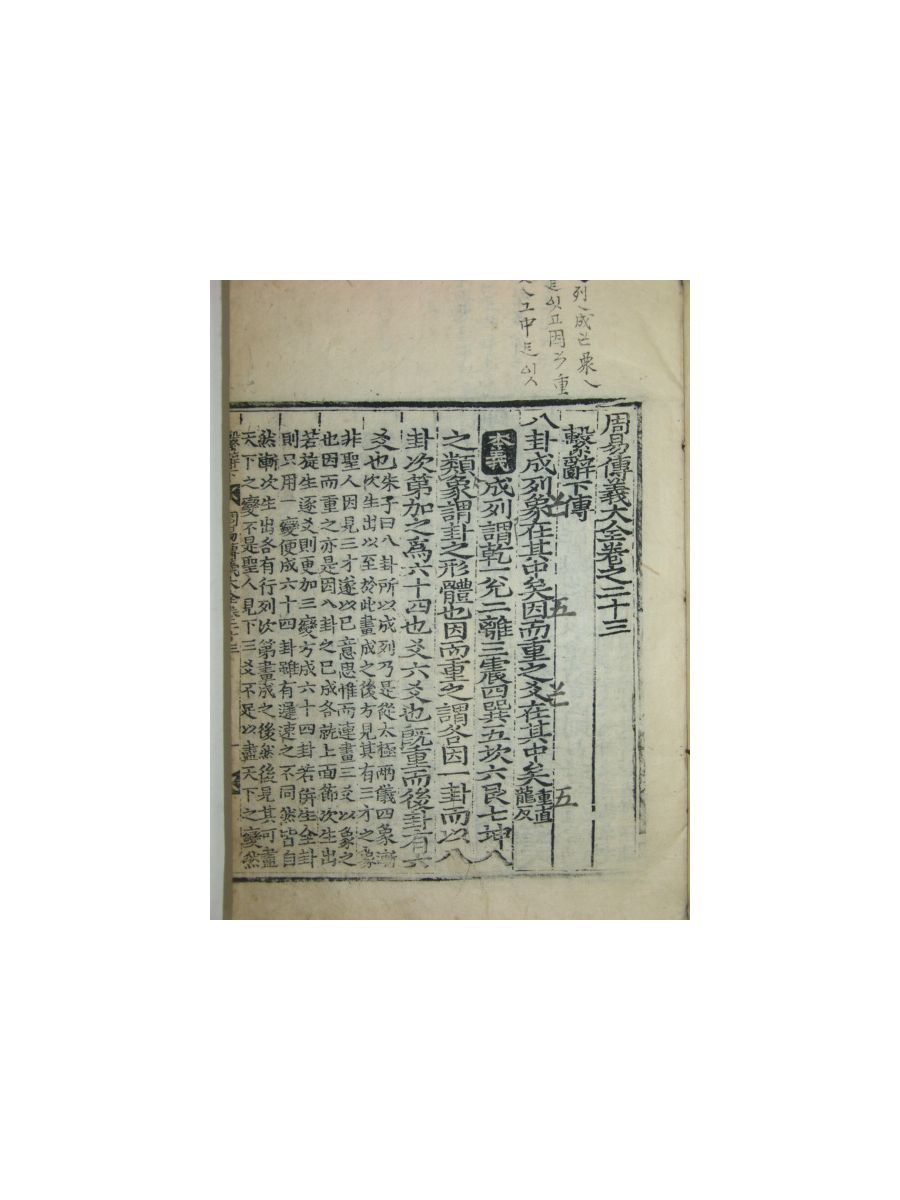 周易傳義大全卷之二十三
繫辭下傳
八卦成列象在其中矣因而重之爻在其中矣重直龍反
本義成列謂乾一兊二離三震四巽五坎六艮七坤八
之類象謂卦之形體也因而重之謂各因一卦而以八
卦次第加之爲六十四也爻六爻也旣重而後卦有六
爻也朱子曰八卦所以成列乃是從太極兩儀四象漸
次生出以至於此畫成之後方見其有三才之象
非聖人因見三才遂以己意思惟而連畫三爻以象之
也因而重之亦是因八卦之已成各就上面節次生出
若旋生逐爻則更加三變方成六十四卦若倂生全卦
則只用一變便成六十四卦雖有遲速之不同然皆自
然漸次生出各有行列次第畫成之後然後見其可盡
天下之變不是聖人見下三爻不足以盡天下之變然